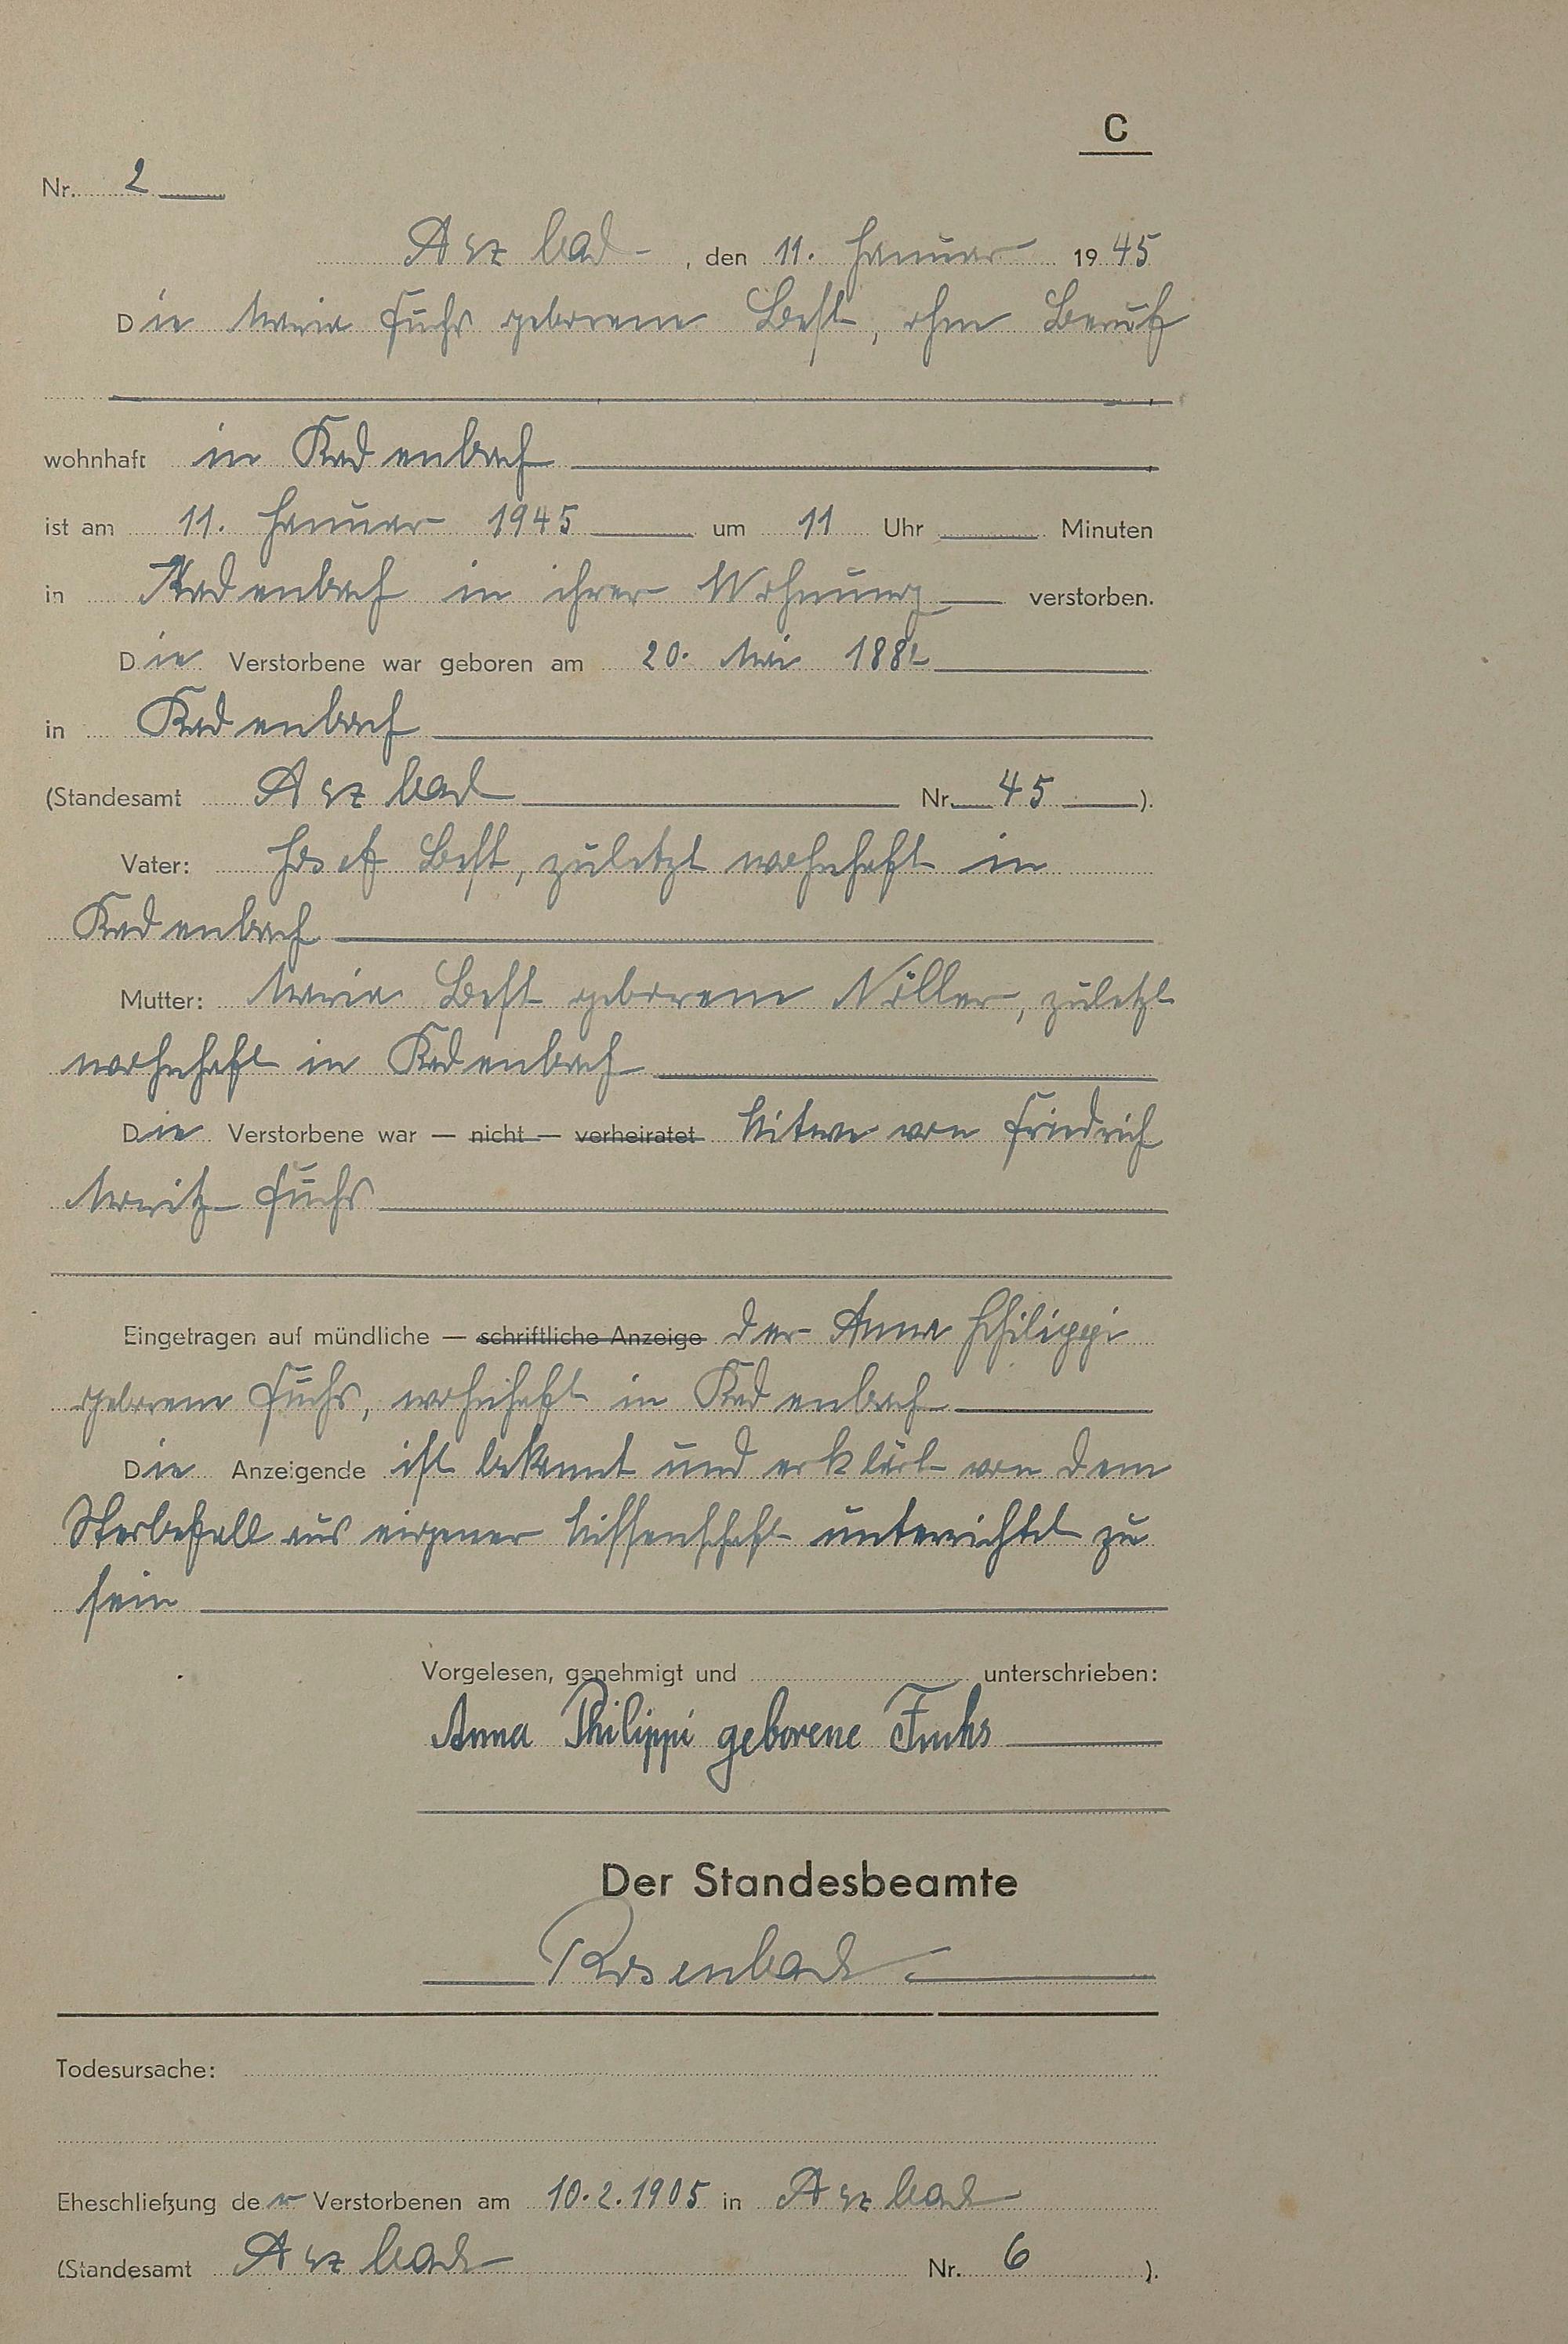 C
Nr. 2
Arzbach, den 11. Januar 1945
Die Maria Fuchs geborene Best, ohne Beruf
wohnhaft in Kadenbach
ist am 11. Januar 1945 um 11 Uhr Minuten
in Kadenbach in ihrer Wohnung verstorben.
Die Verstorbene war geboren am 20. Mai 1882
in Kadenbach
(Standesamt Arzbach Nr. 45 ).
Vater: Josef Best, zuletzt wohnhaft in
Kadenbach
Mutter: Maria Best geborene Nöller, zuletzt
wohnhaft in Kadenbach
Die Verstorbene war — nicht — verheiratet Witwe von Friedrich
Moritz Fuchs
Eingetragen auf mündliche — schriftliche Anzeige der Anna Philippi
geborene Fuchs, wohnhaft in Kadenbach
Die Anzeigende ist bekannt und erklärt von dem
Sterbefall aus eigener Wissenschaft unterrichtet zu
sein
Vorgelesen, genehmigt und unterschrieben:
Anna Philippi geborene Fuchs
Der Standesbeamte
Rosenbach
Todesursache:
Eheschließung der Verstorbenen am 10.2.1905 in Arzbach
(Standesamt Arzbach Nr. 6 ).